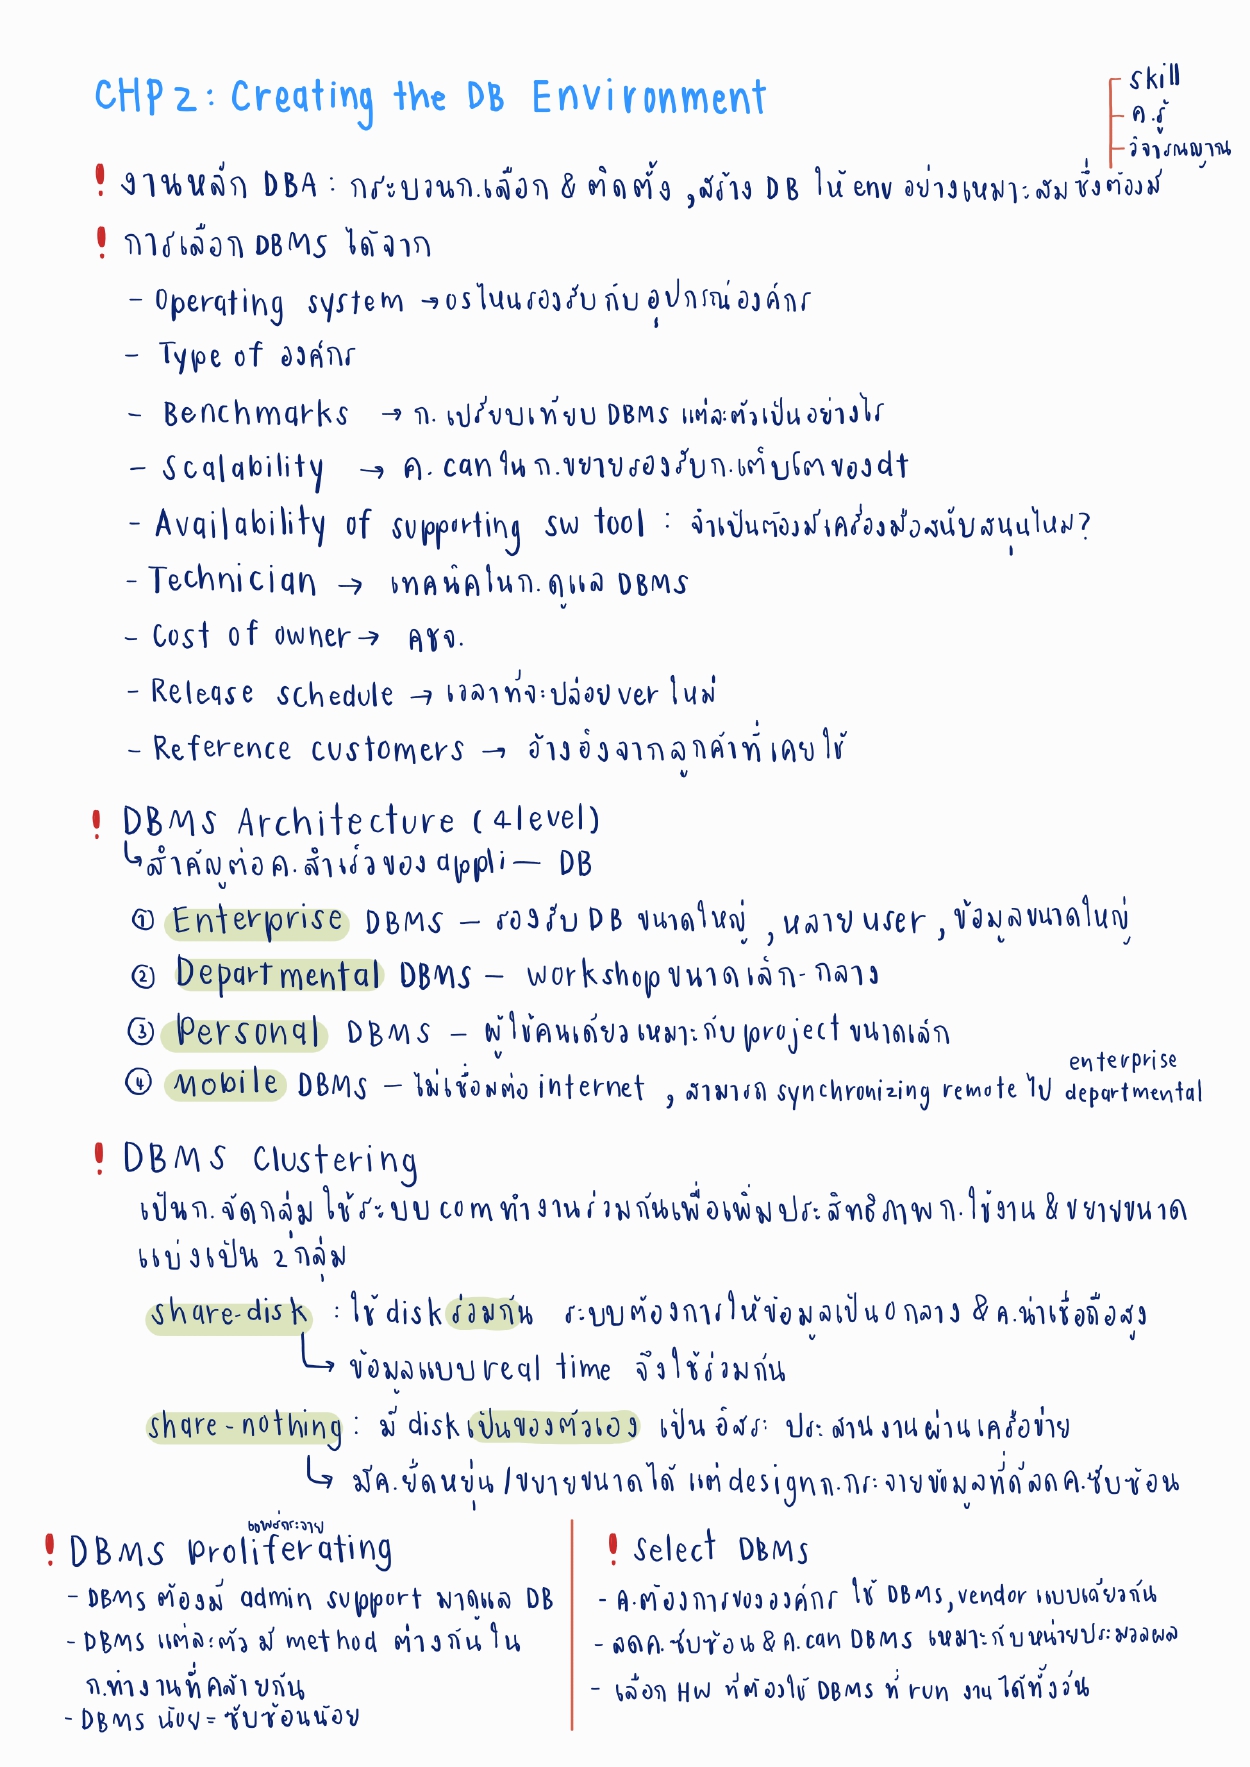 CHP 2 : Creating the DB Environment
skill
ค.รู้
วิจารณญาณ
! งานหลัก DBA : กระบวนก.เลือก & ติดตั้ง , สร้าง DB ให้ env อย่างเหมาะสม ซึ่งต้องมี
! การเลือก DBMS ได้จาก
- Operating system → os ไหนรองรับกับอุปกรณ์องค์กร
- Type of องค์กร
- Benchmarks → ก. เปรียบเทียบ DBMS แต่ละตัวเป็นอย่างไร
- Scalability → ค. can ใน ก.ขยายรองรับก.เติบโตของ dt
- Availability of supporting sw tool : จำเป็นต้องมีเครื่องมือสนับสนุนไหม?
- Technician → เทคนิคในก.ดูแล DBMS
- Cost of owner → คชจ.
- Release schedule → เวลาที่จะปล่อย ver ใหม่
- Reference customers → อ้างอิงจากลูกค้าที่เคยใช้
! DBMS Architecture ( 4 level )
↳ สำคัญต่อ ค.สำเร็จของ appli — DB
① Enterprise DBMS – รองรับ DB ขนาดใหญ่ , หลาย user , ข้อมูลขนาดใหญ่
② Departmental DBMS – workshop ขนาดเล็ก - กลาง
③ Personal DBMS – ผู้ใช้คนเดียว เหมาะกับ project ขนาดเล็ก
enterprise
④ Mobile DBMS – ไม่เชื่อมต่อ internet , สามารถ synchronizing remote ไป departmental
! DBMS Clustering
เป็นก.จัดกลุ่ม ใช้ระบบ com ทำงานร่วมกันเพื่อเพิ่มประสิทธิภาพก.ใช้งาน & ขยายขนาด
แบ่งเป็น 2 กลุ่ม
share-disk : ใช้ disk ร่วมกัน ระบบต้องการให้ข้อมูลเป็น 0 กลาง & ค.น่าเชื่อถือสูง
↳ ข้อมูลแบบ real time จึงใช้ร่วมกัน
share-nothing : มี disk เป็นของตัวเอง เป็นอิสระ ประสานงานผ่านเครือข่าย
↳ มีค.ยืดหยุ่น / ขยายขนาดได้ แต่ design ก.กระจายข้อมูลที่ดีลดค.ซับซ้อน
แพร่กระจาย
! DBMS Proliferating
- DBMS ต้องมี admin support มาดูแล DB
- DBMS แต่ละตัว มี method ต่างกันใน
ก.ทำงานที่คล้ายกัน
- DBMS น้อย = ซับซ้อนน้อย
! Select DBMS
- ค.ต้องการขององค์กร ใช้ DBMS, vendor แบบเดียวกัน
- ลดค.ซับซ้อน & ค.can DBMS เหมาะกับหน่วยประมวลผล
- เลือก HW ที่ต้องใช้ DBMS ที่ run งานได้ทั้งวัน